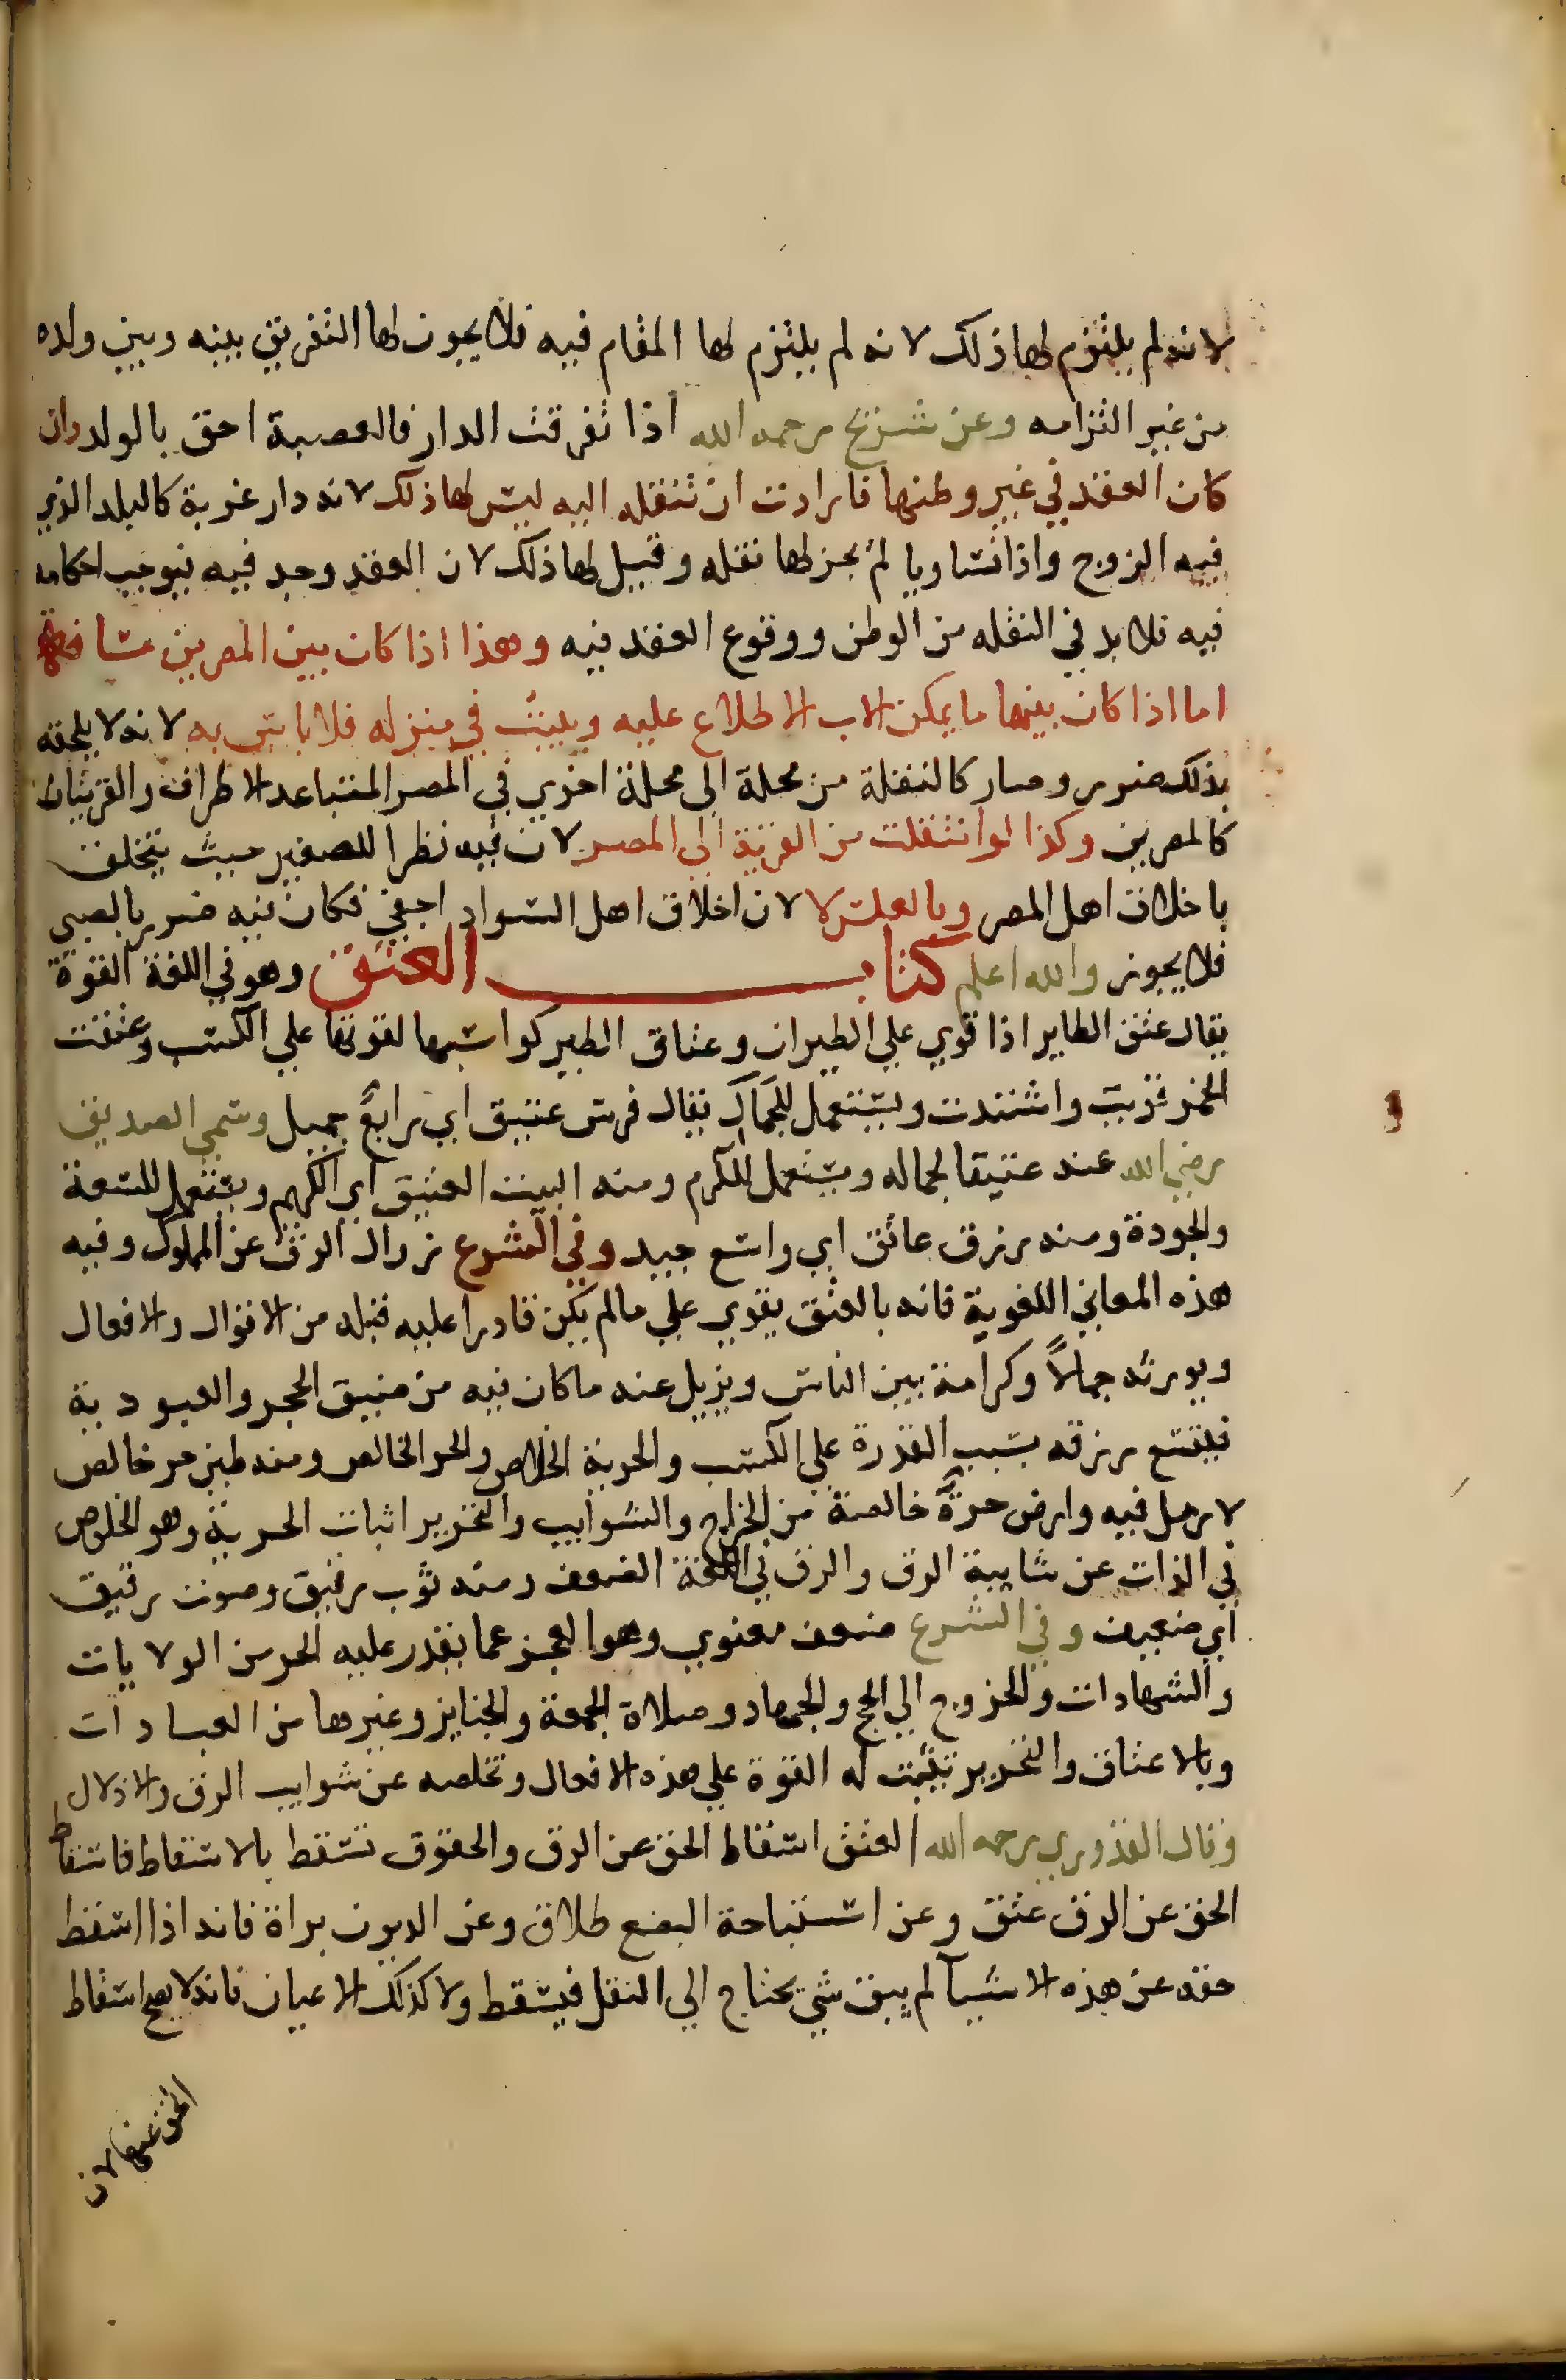 لانه لم يلتزم لها ذلك لانه لم يلتزم لها المقام فيه فلا يجوز لها التفريق بينه وبين ولده
من غير التزامه وعن شريح رحمه الله اذا تفرقت الدار فالعصبة احق بالولد وان
كان العقد في غير وطنها فارادت ان تنقله اليه ليس لها ذلك لانه دار غربة كالبلد الذي
فيه الزوج واذا تساويا لم يجز لها نقله وقيل لها ذلك لان العقد وجد فيه فيوجب احكامه
فيه فلا بد في النقله من الوطن ووقوع العقد فيه وهذا اذا كان بين المصرين مسافة
اما اذا كان بينهما ما يمكن الاب الاطلاع عليه ويبيت في منزله فلا باس به لانه لا يلحقه
بذلك ضرر وصار كالنقلة من محلة الي محلة اخري في المصر المتباعد الاطراف والقريتان
كالمصرين وكذا لو انتقلت من القرية الي المصر لان فيه نظرا للصغير حيث يتخلق
باخلاق اهل المصر وبالعكس لا لان اخلاق اهل السواد اجفي فكان فيه ضرر بالصبي
فلا يجوز والله اعلم كتاب العتق وهو في اللغة القوة
يقال عتق الطاير اذا قوي علي الطيران وعتاق الطير كواسبها لقوتها علي الكسب وعتقت
الخمر قويت واشتدت ويستعمل للجمال يقال فرس عتيق اي رايع جميل وسمي الصديق
رضي الله عنه عتيقا لجماله ويستعمل للكرم ومنه البيت العتيق اي الكريم ويستعمل للسعة
والجودة ومنه رزق عاتق اي واسع جيد وفي الشرع زوال الرق عن المملوك وفيه
هذه المعاني اللغوية فانه بالعتق يقوي علي ما لم يكن قادرا عليه قبله من الاقوال والافعال
ويورثه جمالاً وكرامة بين الناس ويزيل عنه ما كان فيه من ضيق الحجر والعبودية
فيتسع رزقه بسبب القدرة علي الكسب والحرية الخلاص والحر الخالص ومنه طين حر خالص
لا رمل فيه وارض حرة خالصة من الخراج والشوايب والتحرير اثبات الحرية وهو الخلوص
في الذات عن شايبة الرق والرق في اللغة الضعف ومنه ثوب رقيق وصوت رقيق
اي ضعيف وفي الشرع ضعف معنوي وهو العجز عما يقدر عليه الحر من الولايات
والشهادات والخروج الي الحج والجهاد وصلاة الجمعة والجنايز وغيرها من العبادات
وبالاعتاق والتحرير تثبت له القوة علي هذه الافعال وتخلصه عن شوايب الرق والاذلال
وقال القدوري رحمه الله العتق اسقاط الحق عن الرق والحقوق تسقط بالاسقاط فاسقاط
الحق عن الرق عتق وعن استباحة البضع طلاق وعن الديون براة فانه اذا اسقط
حقه عن هذه الاشيآ لم يبق شي يحتاج الي النقل فيسقط ولا كذلك الاعيان فانه لا يصح اسقاط
الحق عنها لان